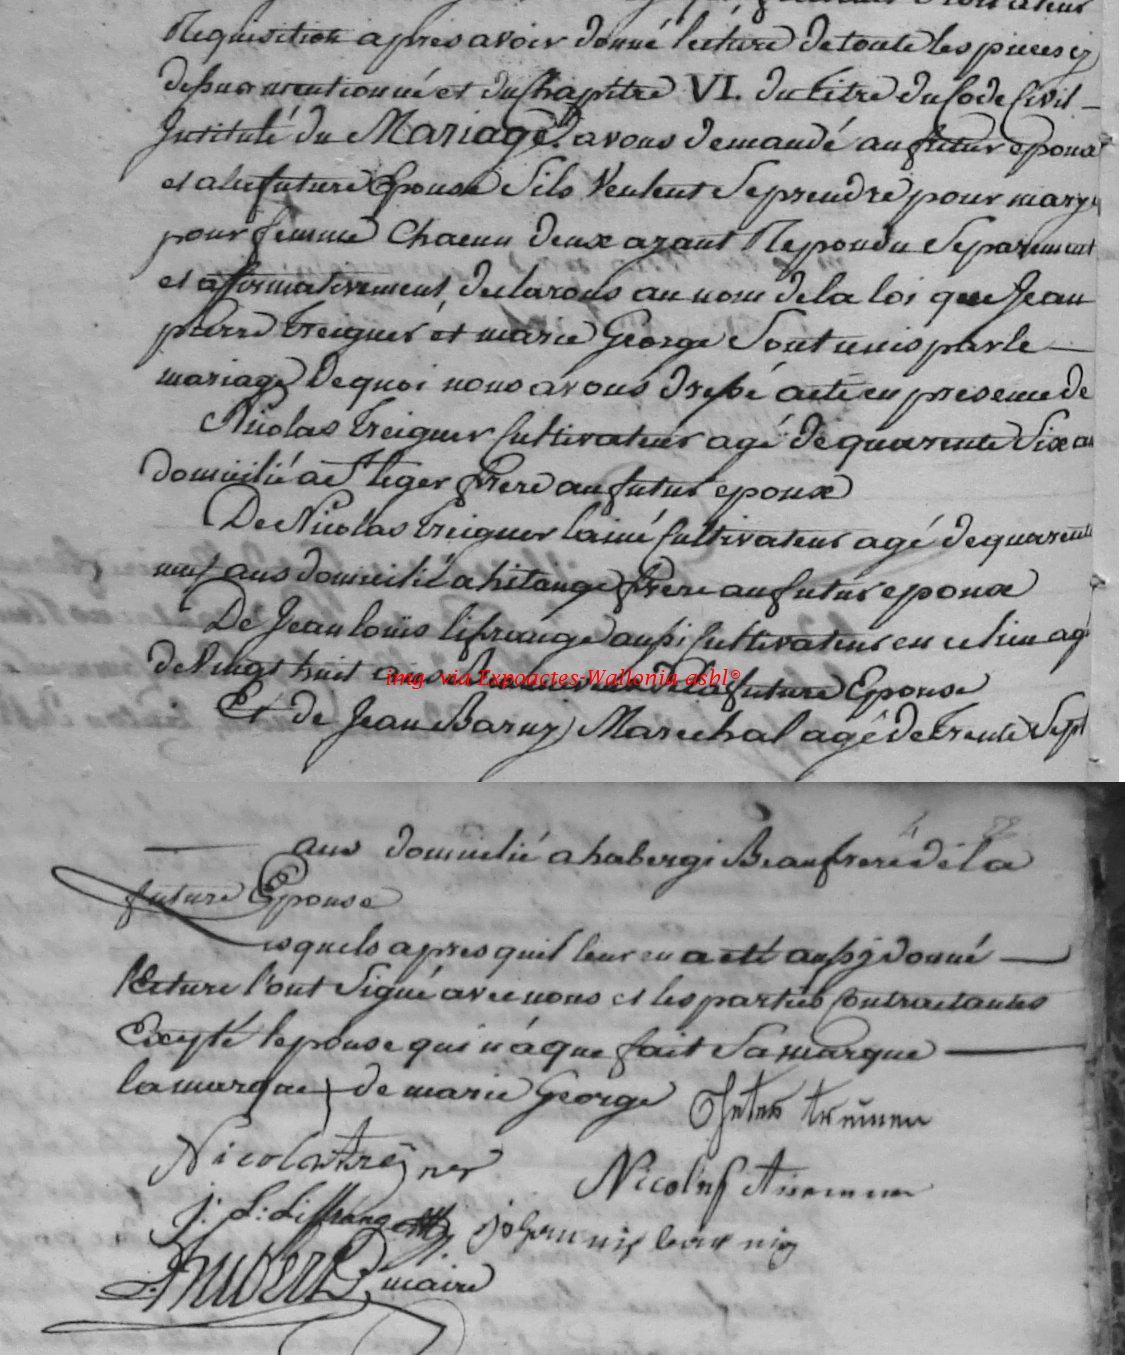 Requisition apres avoir donné lecture de toute les pieces cy
dessus mentionné et du Chapitre VI. du titre du Code Civil
Intitulé du Mariage. avons demandé au futur epoux
et a la future Epouse Sils Veulent Se prendre pour mary
pour femme Chacun deux ayant Repondu Separement
et affirmativement, declarons au nom de la loi que Jean
pierre treigner et marie George Sont unis par le
mariage De quoi nous avons dressé acte en presence de
Nicolas treigner Cultivateur agé de quarente Six ans
domicilié a St leger frere au futur epoux
De Nicolas treigner lainé Cultivateur agé de quarente
neuf ans domicilié a hitange frere au futur epoux
De Jean louis lifrange aussi Cultivateur en ce lieu agé
de Vingt huit ans de la future Epouse
img. via Expoactes-Wallonia asbl©
Et de Jean Barnij Marechal agé de trente Sept
ans domicilié a habergi Beaufrere de la
future Epouse
Lesquels apres quil leur en a eté aussy donné
lecture l'ont Signé avec nous et les parties Contractantes
Excepté lepouse qui n'a que fait Sa marque
la marque de marie George
Peter
Nicolas treigner
Nicolas
j: L: Liffrange
johannis
maire